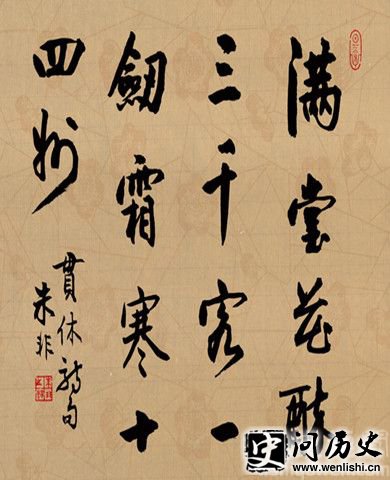 满堂花醉
三千客一
劍霜寒十
四州
貫休诗句
朱非
史问历史
www.wenlishi.cn